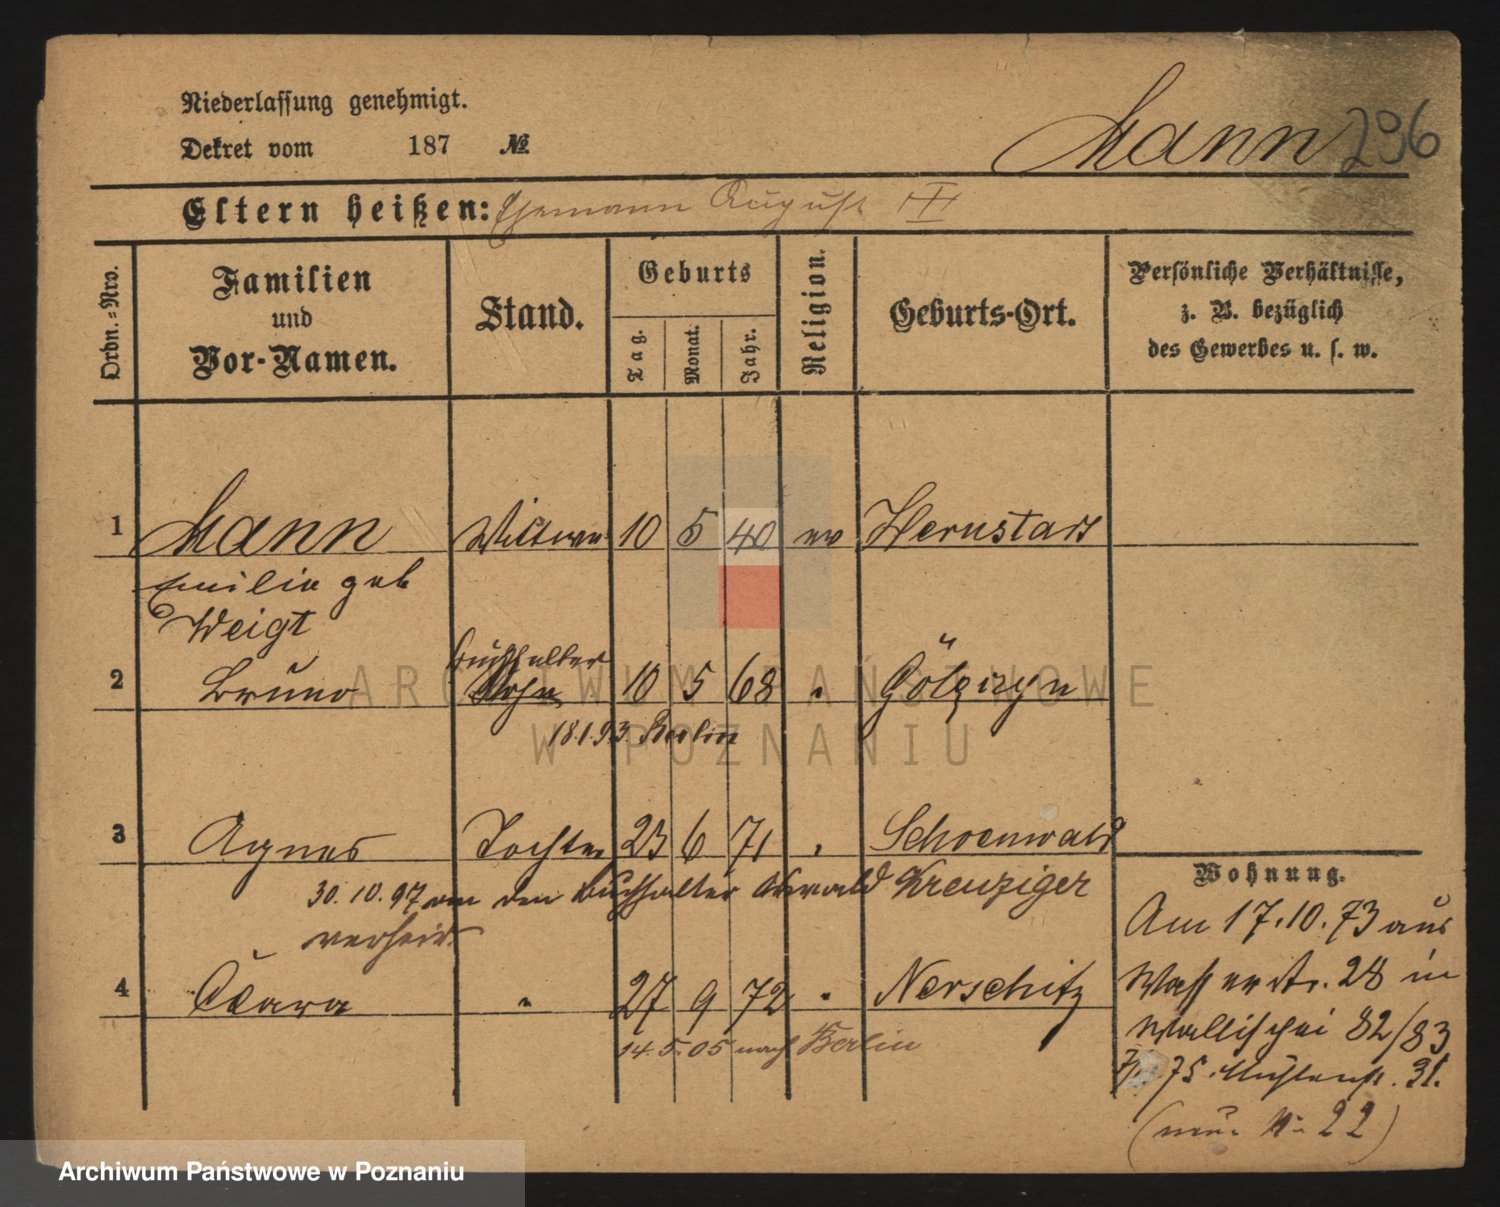 Niederlassung genehmigt.
Dekret vom 187 №
Mann 296
Eltern heißen: Ehemann August III
Ordn.-Nro.
Familien
und
Vor-Namen.
Stand.
Geburts
Tag.
Monat.
Jahr.
Religion.
Geburts-Ort.
Persönliche Verhältnisse,
z. B. bezüglich
des Gewerbes u. s. w.
1 Mann Wittwe 10 5 40 ev Hernstadt
Emilie geb
Weigt
Buchhalter
2 Bruno Sohn 10 5 68 "
18.1.93. Berlin
3 Agnes Tochter 23 6 71 " Schoenwald
30.10.97 an den Buchhalter Oswald Kreuziger
verheir.
4 Clara " 27 9 72 " Nerschitz
14.5.05 nach Berlin
Wohnung.
Am 17.10.73 aus
Wasserstr. 28 in
Wallischei 82/83
75 Mühlenstr. 31.
22)
ARCHIWUM PAŃSTWOWE
W POZNANIU
Archiwum Państwowe w Poznaniu